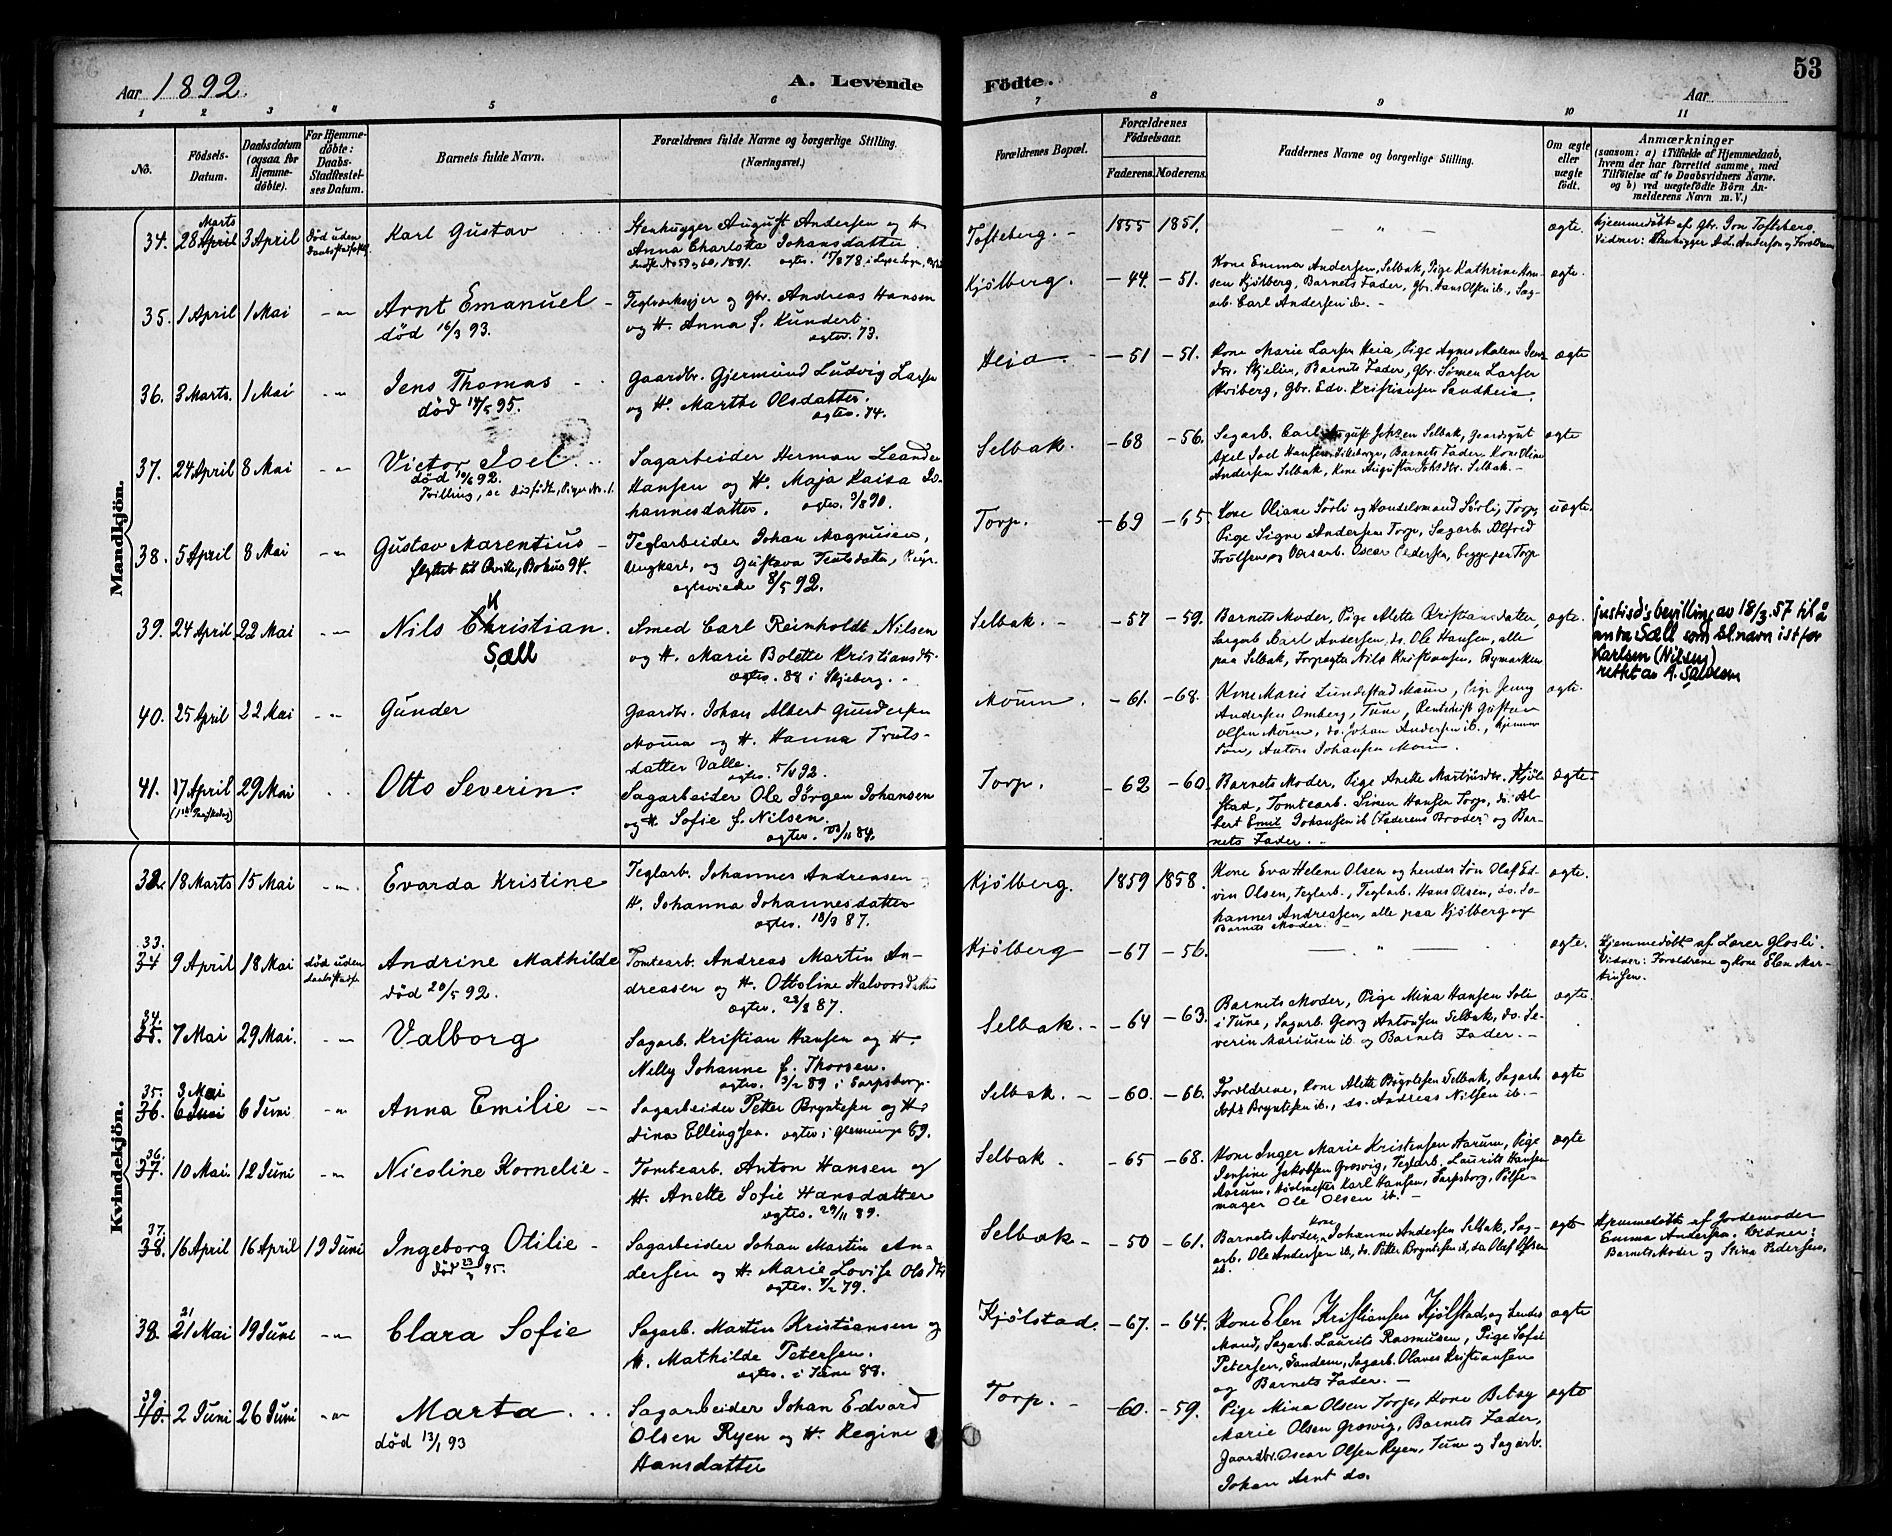 Aar 1892. A. Levende Födte. Aar 53
1 2 3 4 5 6 7 8 9 10 11
No. Födsels-Datum. Daabsdatum (ogsaa for Hjemmedöbte). For Hjemmedöbte: Daabs-Stadfæstelses Datum. Barnets fulde Navn. Forældrenes fulde Navne og borgerlige Stilling. (Næringsvei.) Forældrenes Bopæl. Forældrenes Födselsaar. Faderens. Moderens. Faddernes Navne og borgerlige Stilling. Om ægte eller uægte födt. Anmærkninger (saasom: a) i Tilfælde af Hjemmedaab, hvem der har forrettet samme, med Tilföielse af to Daabsvidners Navne. og b) ved uægtefödte Börn Anmelderens Navn m. V.)
Mandkjön.
34. 28 Marts April 3 April død uden Karl Gustav Stenhugger August Andersen og H.
Anna Charlotta Johansdatter Tofteberg. 1855 1851. ægte. Hjemmedøbt af Gbr. Jon Tofteberg.
35. 1 April 1 Mai Arnt Emanuel Teglværksejer og Gbr. Andreas Hansen
død 16/3 93. og H. Anna f. Kundert. ægtev. 73.
Kjølberg. -44 -51. Kone Emma Andersen, Selbak, Pige Kathrine Han-
sen Kjölberg, Barnets Fader, Gbr. Hans Olsen ib., Sag-
arb. Carl Andersen ib. ægte.
36. 3 Marts. 1 Mai Jens Thomas Gaardbr. Gjermund Ludvig Larsen
død 14/5 95. og H. Marthe Olsdatter. ægtev. 74.
Heia -51 -51. Kone Marie Larsen Heia, Pige Agnes Malene Jens-
dtr. Skjelin, Barnets Fader, Gbr. Simen Larsen
Hviberg, Gbr. Edv. Kristiansen Sandheia. ægte
37. 24 April 8 Mai Victor Joel Sagarbeider Herman Leander
død 10/6 92. Hansen og H. Maja Kaisa Jo-
Tvilling, se Dødfødte, Piger No. 1. hannesdatter. ægtev. 9/8 90.
Selbak. -68 -56. Sagarb. Carl August Jensen Selbak, Gaardsgut
Axel Joel Hansen, Barnets Fader, Kone Oline
Andersen Selbak, Kone Augusta Selbak. ægte
38. 5 April 8 Mai Gustav Marentius Teglarbeider Johan Magnusen,
flyttet til Qville, Bohus 94. Ungkarl, og Gustava Teutsdatter, Pige.
ægteviede 8/5 92.
Torp. -69 -65. Kone Oliane Sørli og Handelsmand Sørli, Torp,
Pige Signe Andersen Torp, Sagarb. Alfred
Trulsen og Oscar Pedersen, begge paa Torp uægte.
39. 24 April 22 Mai Nils Christian. K Smed Carl Reinholdt Nilsen
Sæll og H. Marie Bolette Kristiansdtr.
ægtev. 88 i Skjeberg.
Selbak. -57 -59. Barnets Moder, Pige Alette Kristiansdatter,
Sagarb Carl Andersen, do. Ole Hansen, alle
paa Selbak, Nils Kristiansen, Bymarken ægte. justisd's bevilling av 18/3.57 til å
anta Sæll som sl.navn istfor
Karlsen (Nilsen)
rettet av
40. 25 April 22 Mai Gunder Gaardbr. Johan Albert Gundersen
Moum og H. Hanna Truls-
datter Valle. ægtev. 5/4 92.
Moum -61. -68. Kone Marie Lundestad Moum, Pige Jenny
Andersen Omberg, Tune, Gustav
Olsen Moum, do. Johan Andersen ib., Hjemme-
søn, Anton Johansen Moum. ægte.
41. 17 April 29 Mai Otto Severin. Sagarbeider Ole Jörgen Johansen
og H. Sofie f. Nilsen. ægtev. 23/11 84.
Torp. -62 -60. Barnets Moder, Pige Anette Martinsdtr. Kjöl-
stad, Tomtearb. Simen Hansen Torp, do. Al-
bert Emil Johansen ib (Faderens Broder) og Bar-
nets Fader. ægte.
Kvindekjön.
32. 18 Marts 15 Mai Evarda Kristine Teglarb. Johannes Andreasen
H. Johanna Johannesdatter
ægtev. 18/3 87.
Kjølberg. 1859 1858. Kone Eva Helene Olsen og hendes Søn Olaf Ed-
vin Olsen, Teglarb., Teglarb. Hans Olsen, do. Jo-
hannes Andreasen, alle paa Kjölberg og
Barnets Moder. ægte.
33. 34 9 April 18 Mai død uden Andrine Mathilde Tomtearb. Andreas Martin An-
død 20/5 92. dreasen og H. Ottoline Halvorsdatter
ægtev. 23/8 87.
Kjølberg -67 -56. ægte. Hjemmedøbt af Lærer Glosli.
Vidner: Forældrene og Kone Elen Mar-
tinsen.
34. 35. 7 Mai 29 Mai. Valborg Sagarb. Kristian Hansen og H.
Nelly Johanne f. Thorsen.
ægtev. 3/2 89 i Sarpsborg.
Selbak. -64 -63. Barnets Moder, Pige Mina Hansen Soli
i Tune, Sagarb. Georg Antonsen Selbak, do. Se-
verin Mariusen ib. og Barnets Fader. ægte.
35. 36. 3 Mai 6 Juni Anna Emilie Sagarbeider Petter Bryntesen og H.
Dina Ellingsen. ægtev i Glemminge 89.
Selbak. -60. -66. Forældrene, Kone Alette Bryntesen Selbak, Sagarb.
Bryntesen ib., do. Andreas Nilsen ib. ægte
36. 37. 10 Mai. 12 Juni Nicoline Kornelie Tomtearb. Anton Hansen og
H. Anette Sofie Hansdatter
ægtev. 29/11 89.
Selbak. -65 -68. Kone Inger Marie Kristensen Aarum, Pige
Jensine Jakobsen Grosvig, Teglarb. Laurits Hansen
Aarum, Karl Hansen, Sarpsborg, Pölse-
mager Ole Olsen ib. ægte
37. 38. 16 April 16 April 19 Juni Ingeborg Otilie Sagarbeider Johan Martin An-
død 23/3 95. dersen og H. Marie Lovise Olsdtr
ægtev. 7/2 79.
Selbak -50 -61. Barnets Moder, Kone Johanne Andersen Selbak, Sag-
arb. Ole Andersen ib, do. Petter Bryntesen ib, do Olaf Olsen
ib. ægte Hjemmedøbt af Jordemoder
Emma Andersen. Vidner:
Barnets Moder og Stina Pedersen.
38. 21 Mai 19 Juni Clara Sofie Sagarb. Martin Kristiansen og
H. Mathilde Petersen.
ægtev. i Tune 88.
Kjølstad. -67. -64. Kone Elen Kristiansen Kjølstad, og hendes
Mand, Sagarb. Laurits Rasmussen, Pige Sofie
Petersen, Sandem, Sagarb. Olaves Kristiansen
og Barnets Fader. ægte
39. 40. 2 Juni 26 Juni Marta Sagarbeider Johan Edvard
død 13/1 93 Olsen Ryen og H. Regine
Hansdatter
Torp. -60. -59. Pige Mina Olsen Torp, Kone Betsy
Marie Olsen Grosvig, Barnets Fader,
Gaardbr. Oscar Olsen Ryen, Tune og Sagarb.
Johan Arnt do. ægte